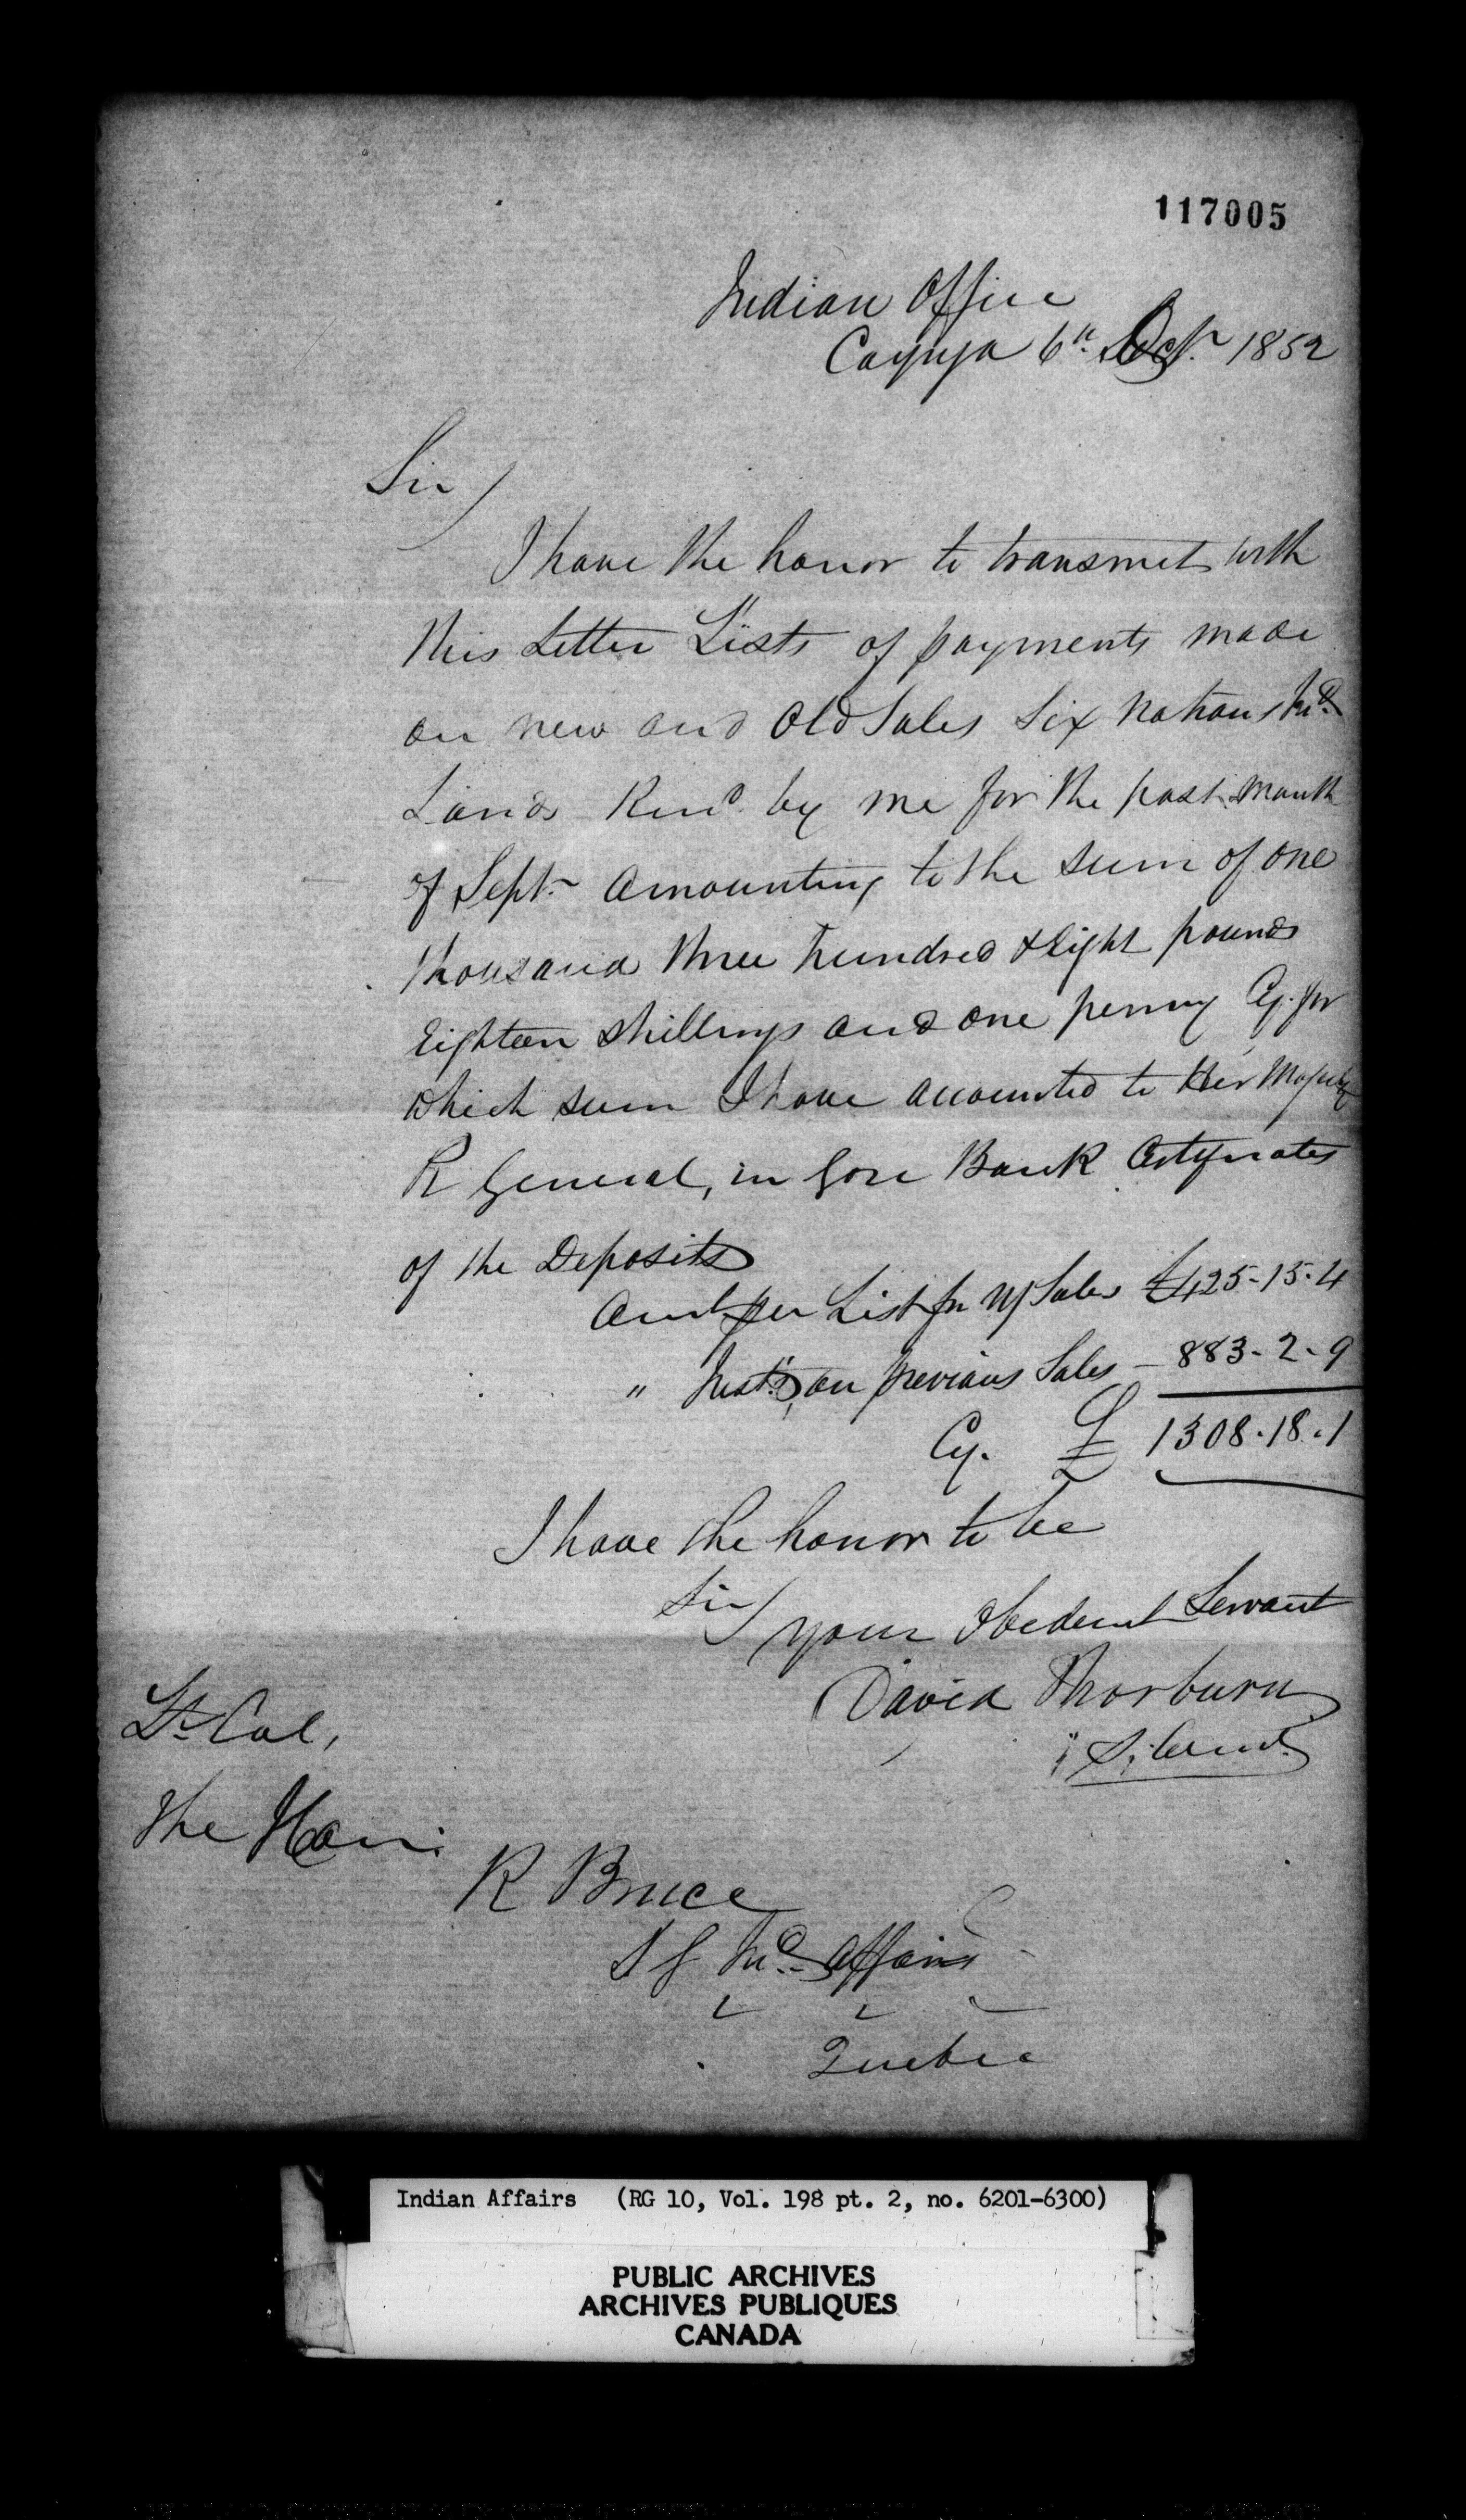 117005
Indian Office
Cayuga 6th Oct. 1852
Sir/
I have the honor to transmit with
this Letter Lists of payments made
on new and Old Sales Six Nations Ind.
Lands Recd. by me for the past month
of Sept. Amounting to the sum of one
thousand three hundred & Eight pounds
Eighteen shillings and one penny Cy. for
which sum I have accounted to Her Majesty
R General, in Gore Bank Certificates
of the Deposits
Amt per List for N/Sales £425-15-4
" Inst.s, on previous Sales - 883-2-9
Cy. £ 1308.18.1
I have the honor to be
Sir/ your Obedient Servant
David Thorburn
Lt Col,
The Hon:
R Bruce
S G Ind. Affairs
Quebec
Indian Affairs (RG 10, Vol. 198 pt. 2, no. 6201-6300)
PUBLIC ARCHIVES
ARCHIVES PUBLIQUES
CANADA